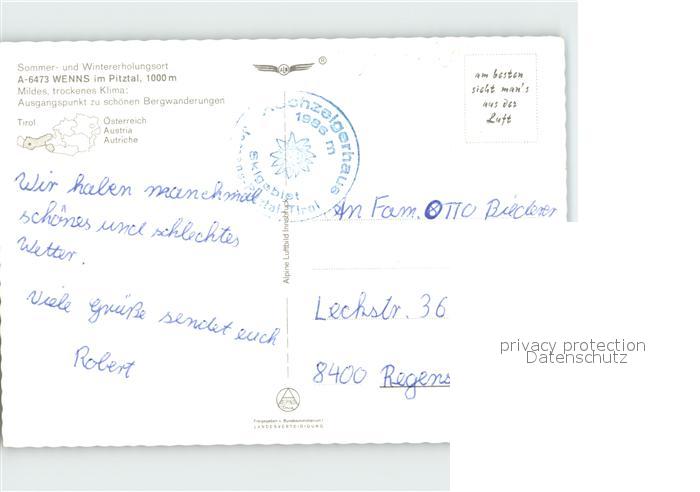 Sommer- und Wintererholungsort
A-6473 WENNS im Pitztal, 1000 m
Mildes, trockenes Klima:
Ausgangspunkt zu schönen Bergwanderungen
Tirol
Österreich
Austria
Autriche
®
am besten
sieht man's
aus der
Luft
Hochzeigerhaus
1986 m
Skigebiet
Tirol
Wir haben manchmal
schönes und schlechtes
Wetter.
Viele Grüße sendet euch
Robert
Alpine Luftbild Innsbruck
An Fam. OTTO Biederer
Lechstr. 36
8400 Regens
privacy protection
Datenschutz
Freigegeben v. Bundesministerium f.
LANDESVERTEIDIGUNG